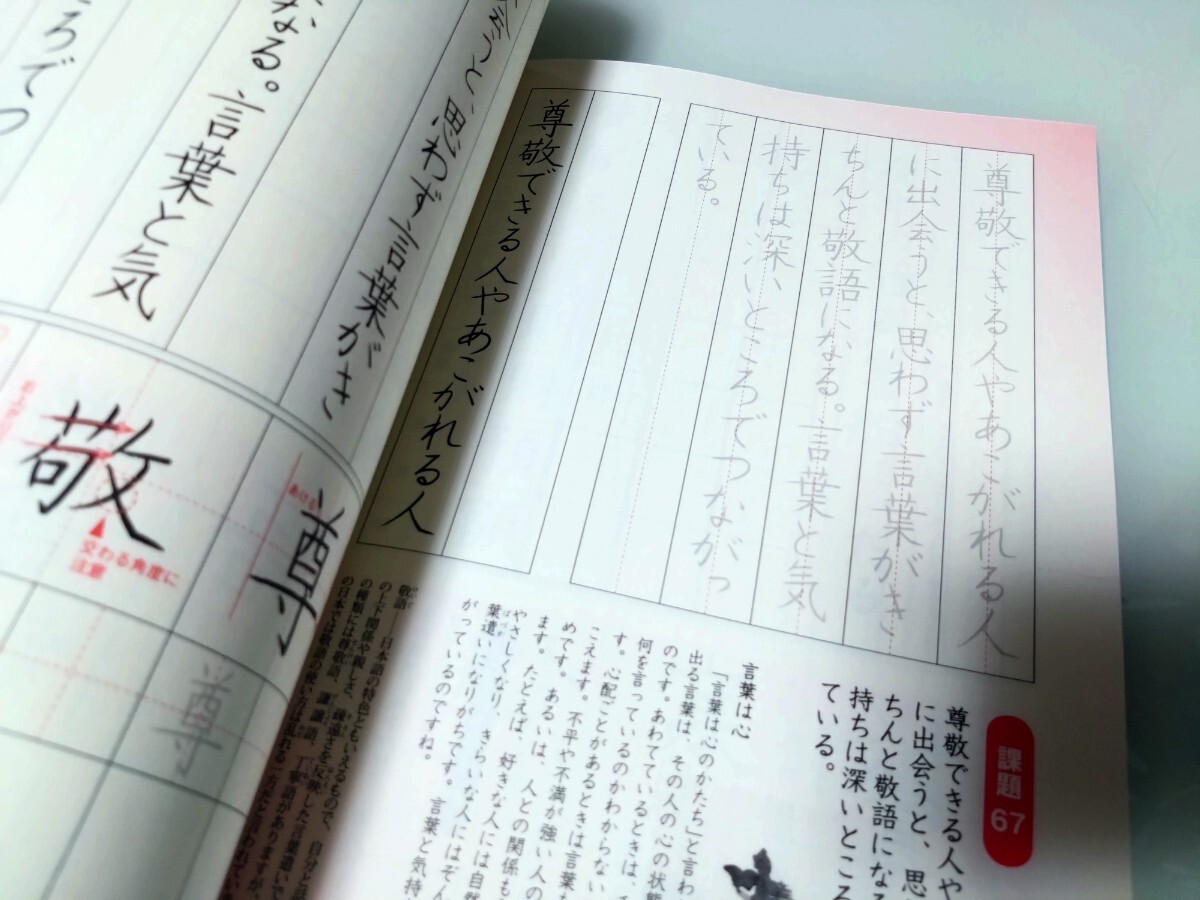 課題67
尊敬できる人や
に出会うと、思
ちんと敬語になる
持ちは深いところ
ている。
尊敬できる人やあこがれる人
に出会うと、思わず言葉がき
ちんと敬語になる。言葉と気
持ちは深いところでつながっ
ている。
尊敬できる人やあこがれる人
言葉は心
「言葉は心のかたち」と言わ
出る言葉は、その人の心の状態
のです。あわてているときは、
何を言っているのかわからない
す。心配ごとがあるときは言葉
こえます。不平や不満が強い人の
めです。あるいは、人との関係も
ます。たとえば、好きな人には自然
やさしくなり、きらいな人にはぞん
葉遣いになりがちです。言葉と気持
がっているのですね。
敬語
日本語の特色ともいえるもので、
の上下関係や親しさ、疎遠さを反映した言葉遣いで
の種類には尊敬語、謙譲語、丁寧語がありますが、
の日本では敬語の使い方は乱れる一方だと言われてい
と、思わず言葉がき
なる。言葉と気
ろでつ
尊
あける
敬
交わる角度に
注意
尊